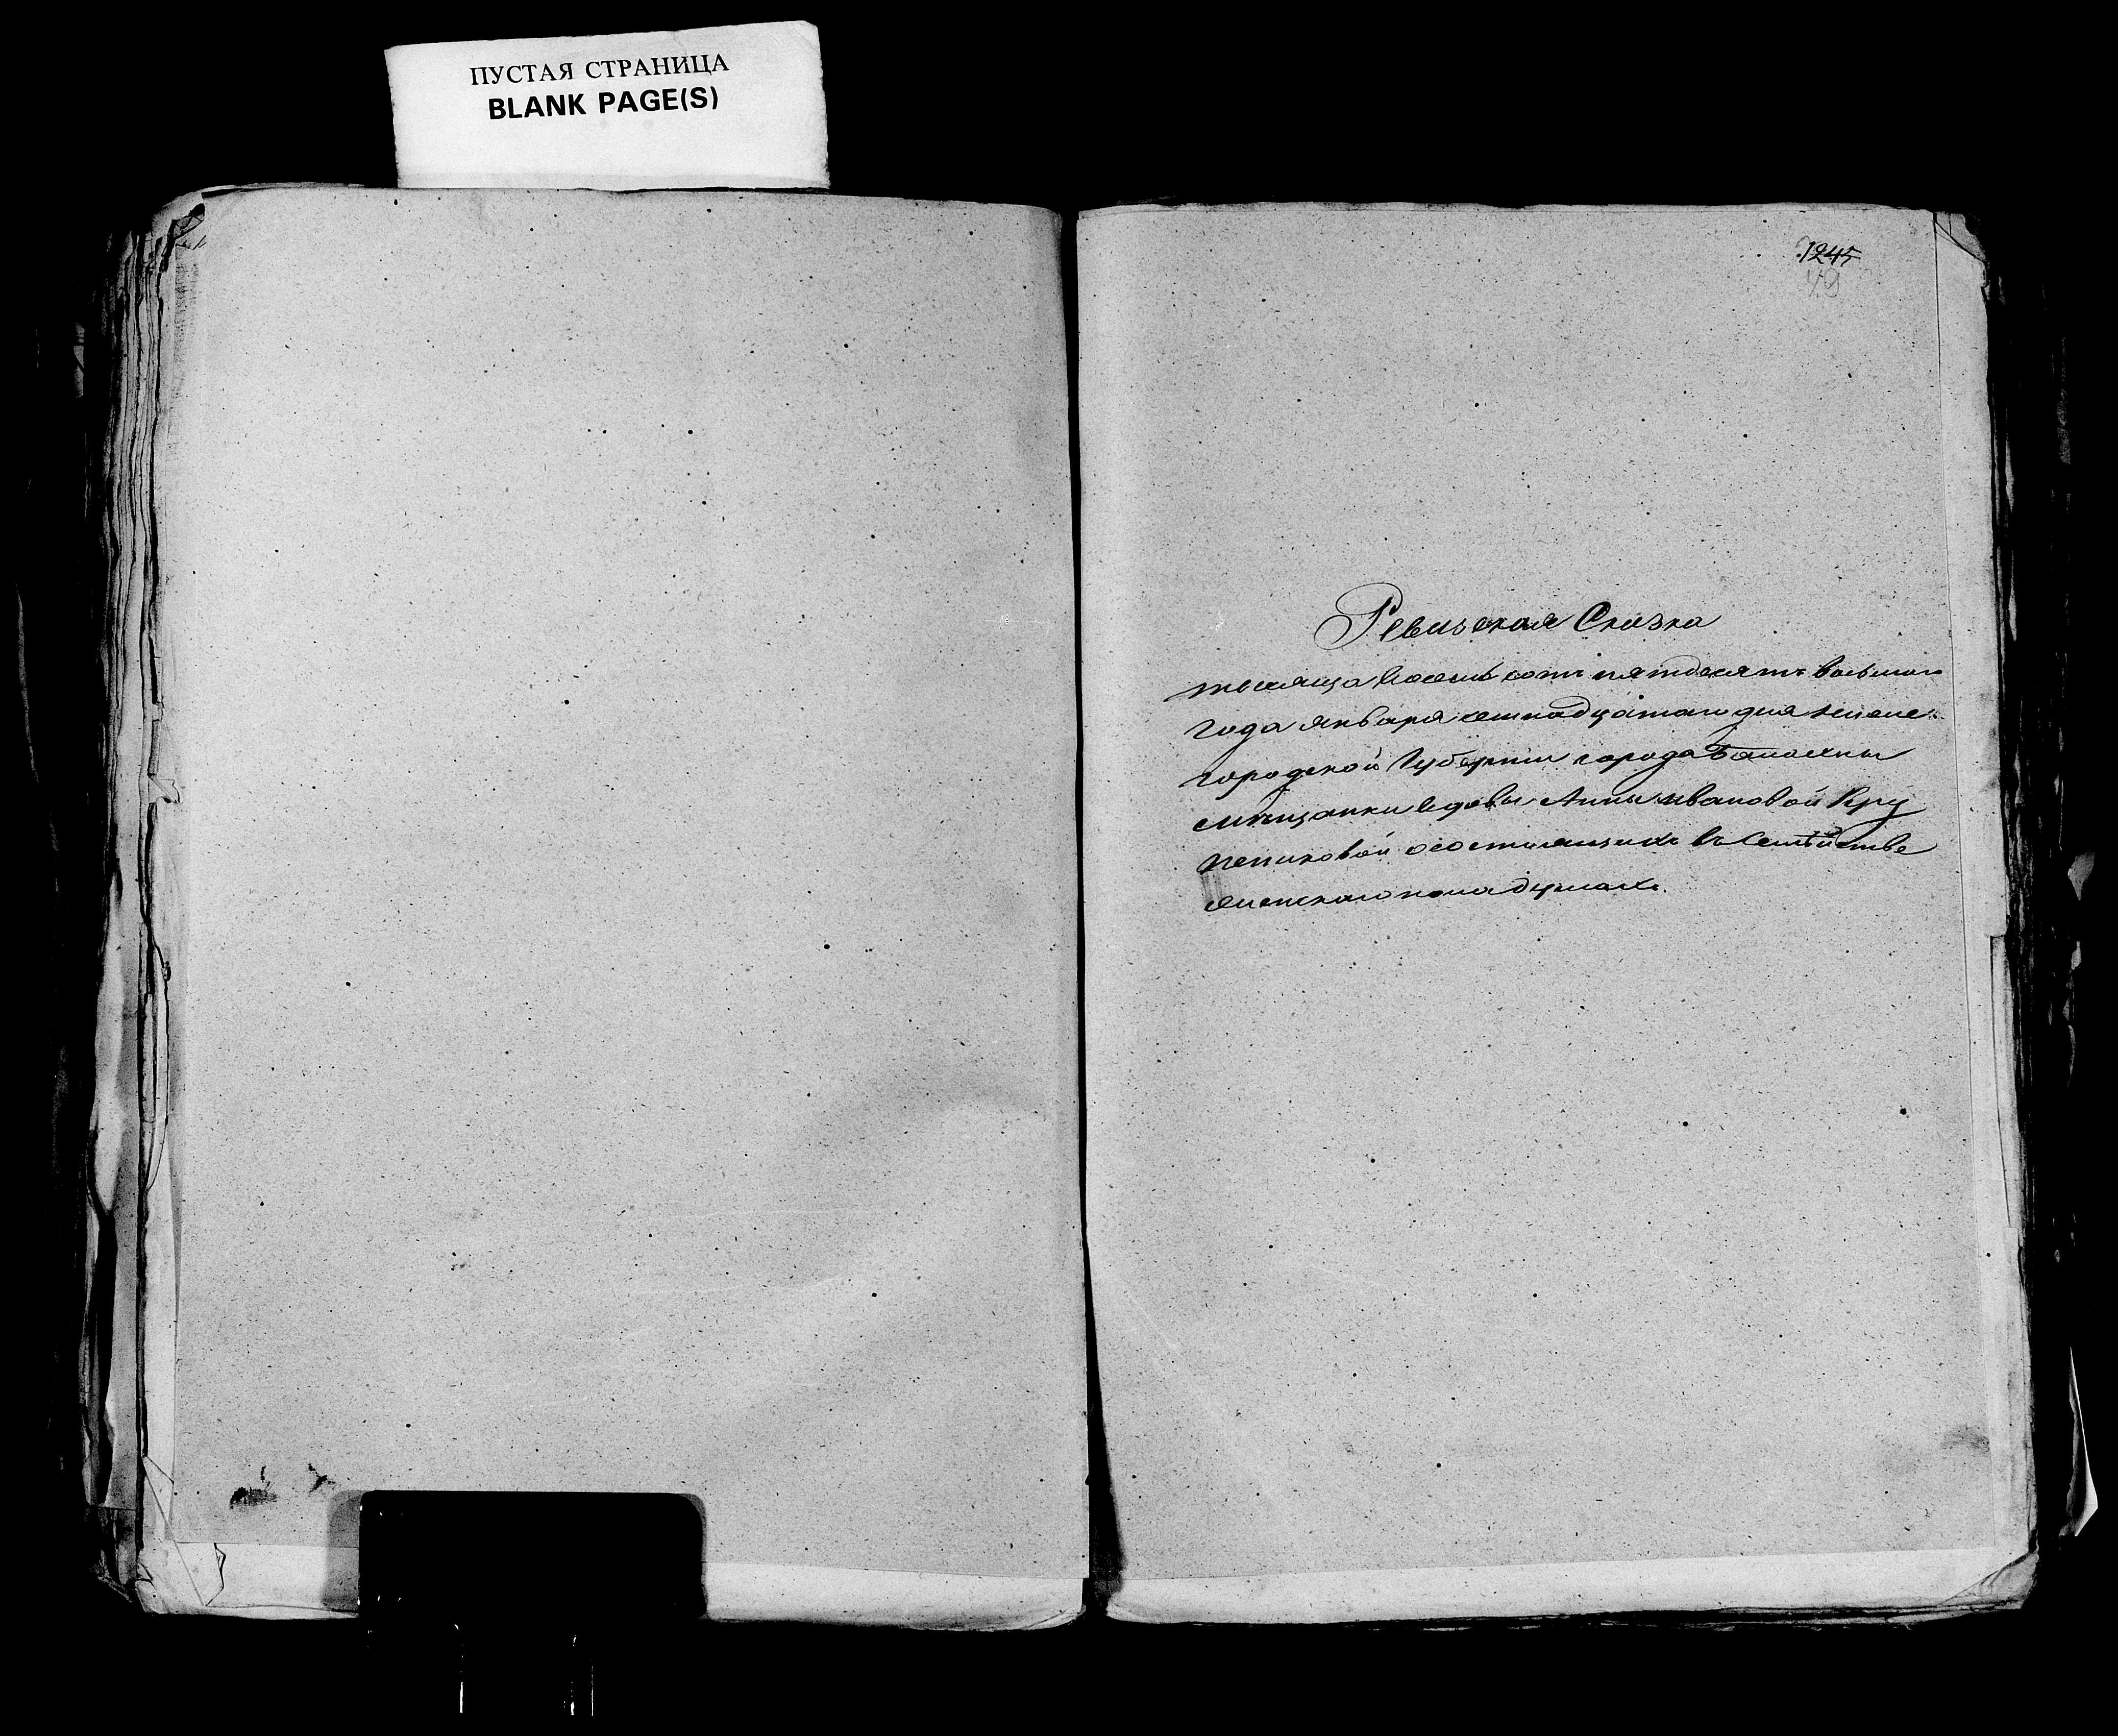 ПУСТАЯ СТРАНИЦА
BLANK PAGE(S)
1245
Ревизская Сказка
тысяща восемь сотъ пятдесятъ восьмаго
года января семнадцатаго дня нижене
городской Губернии города Балахны
мещанки вдовы Анны ивановой Кру
пениковой о состоящихъ въ Семѣйстве
женскаго пола душахъ.